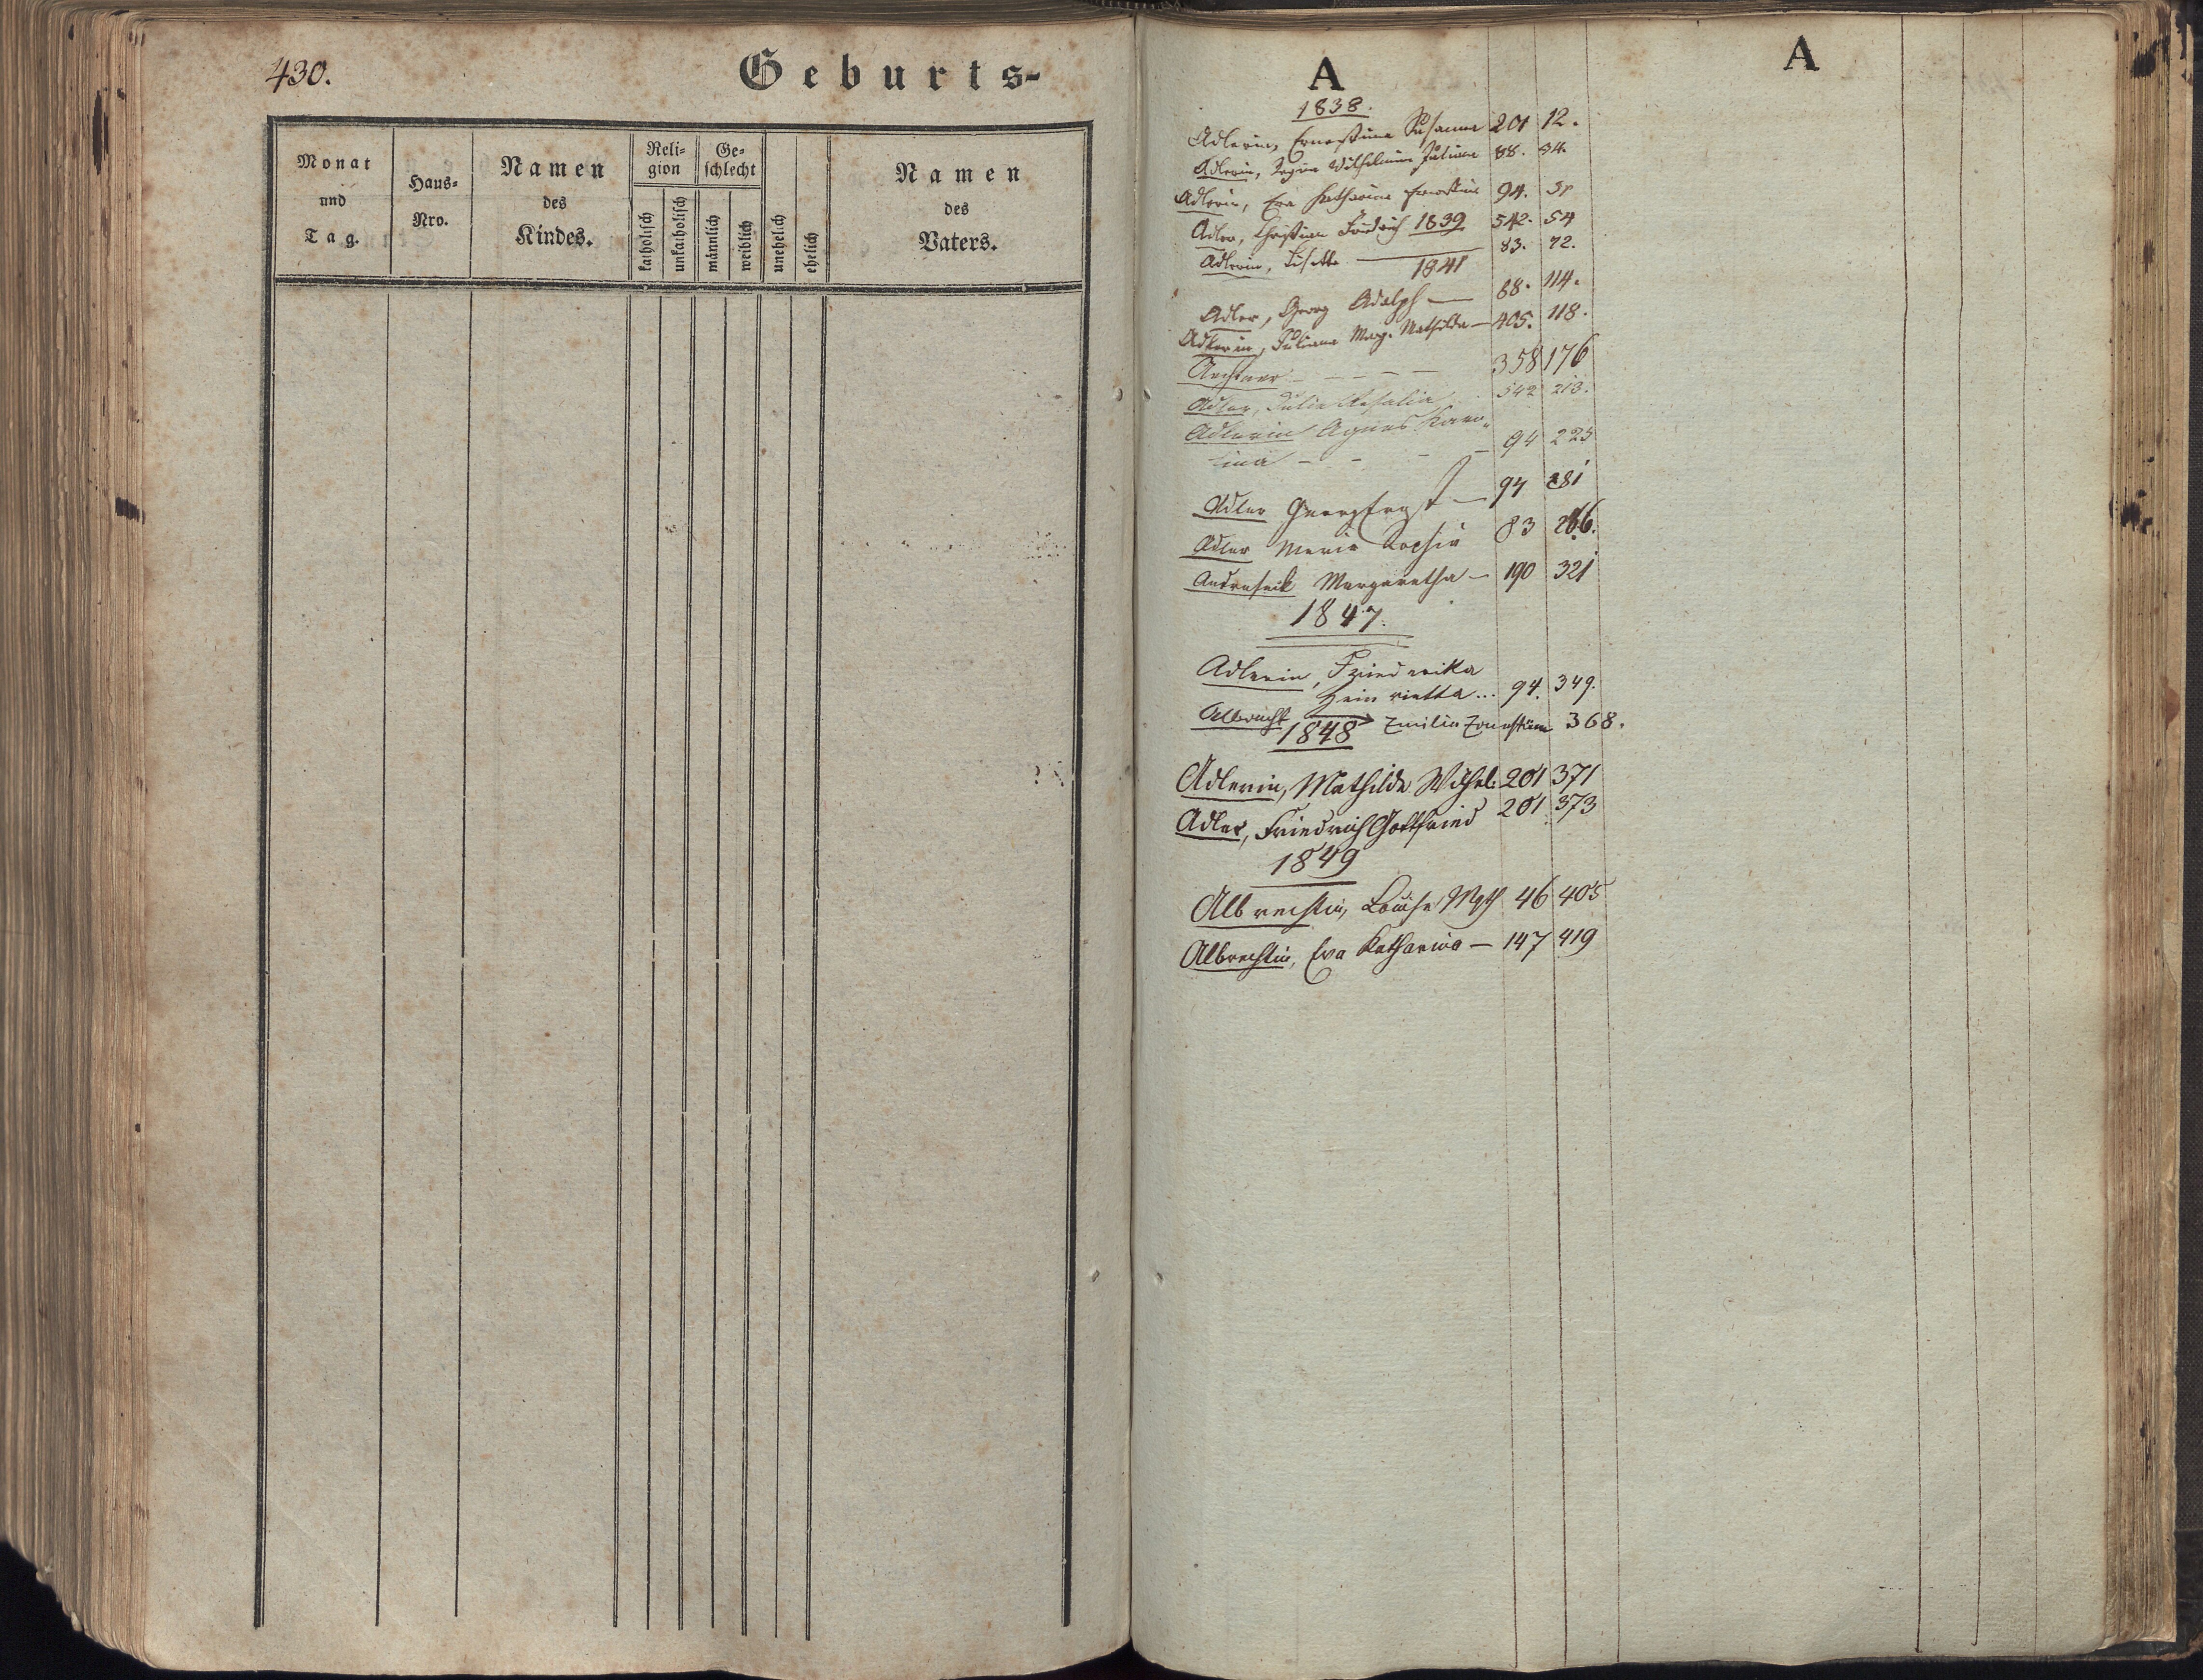 430.
Geburts-
Monat
und
Tag.
Haus-
Nro.
Namen
des
Kindes.
Reli-
gion
katholisch
unkatholisch
Ge-
schlecht
männlich
weiblich
unehelich
ehelich
Namen
des
Vaters.
A
1838.
Adlerin, Ernestine Susanna 201 12.
Adlerin, Regina Wilhelmine Juliane 88. 34.
Adlerin, Eva Katharina Ernestine 94.
Adler, Christian Friedrich 1839 542. 54
Adlerin, Lisette — 83. 72.
1841
Adler, Georg Adolph — 88. 114.
Adlerin, Juliana Marg. Mathilda — 405. 118.
358 176
Adler, Julie Rosalia 542 213.
Adlerin Agnes Karo-
lina - - - - 94 225
Adler Georg Ernst — 94 281
Adler Maria Sophia 83
Margaretha — 190 321
1847.
Adlerin, Friederika
Heinrietta... 94. 349.
Albrecht Emilia Ernestine 368.
1848
Adlerin, Mathilde Wilhel: 201 371
Adler, Friedrich Gottfried 201 373
1849
Albrechtin, Louise 46 405
Albrechtin, Eva Katharina — 147 419
A